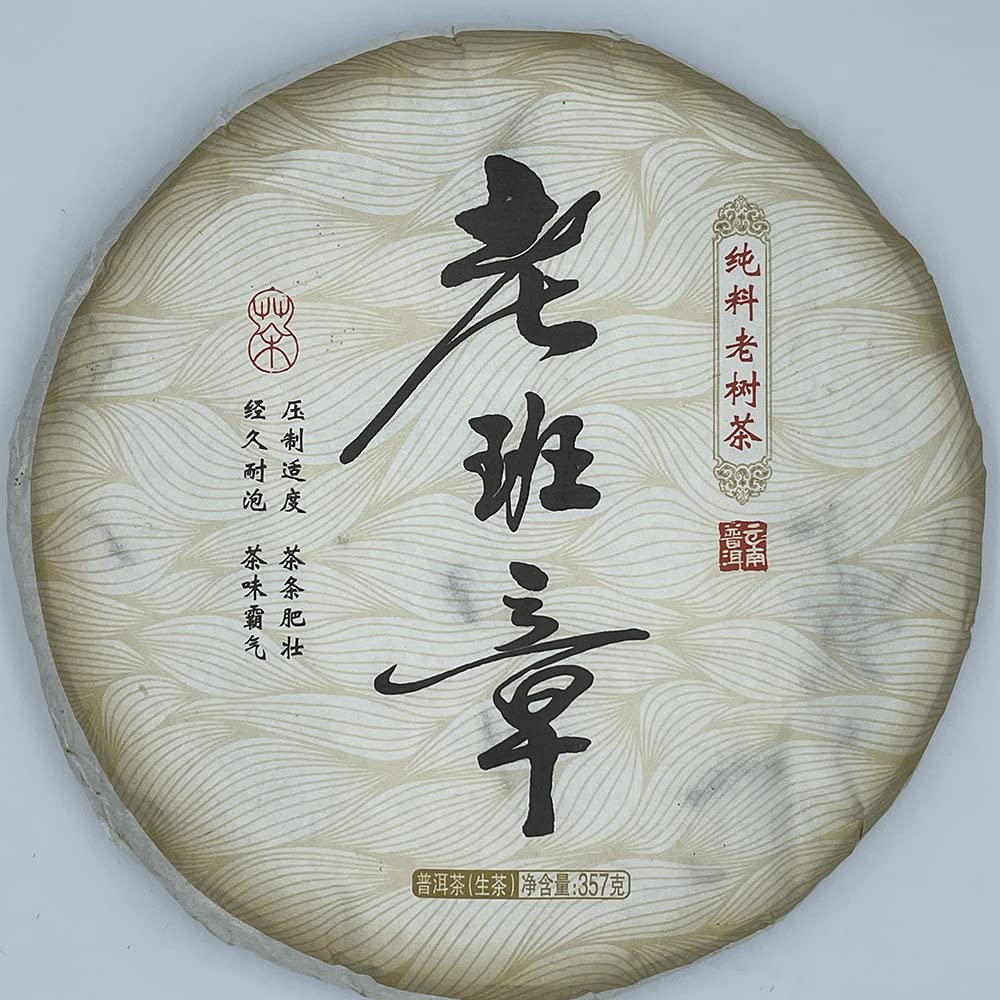 纯料老树茶
云南
普洱
老班章
茶
压制适度 茶条肥壮
经久耐泡 茶味霸气
普洱茶(生茶) 净含量:357克